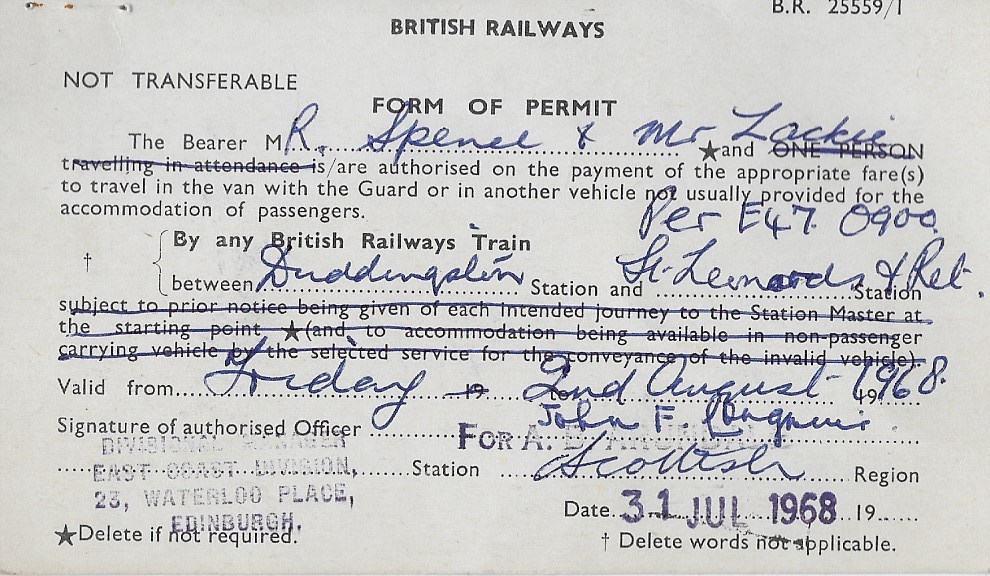 B.R. 25559/1
BRITISH RAILWAYS
NOT TRANSFERABLE
FORM OF PERMIT
The Bearer MR. Spence & Mr Lackie ★and ONE PERSON
travelling in attendance is/are authorised on the payment of the appropriate fare(s)
to travel in the van with the Guard or in another vehicle not usually provided for the
accommodation of passengers. Per E47. 0900.
By any British Railways Train
† between Duddingston Station and St. Leonards & Ret. Station
subject to prior notice being given of each intended journey to the Station Master at
the starting point ★(and to accommodation being available in non-passenger
carrying vehicle by the selected service for the conveyance of the invalid vehicle).
Valid from Friday 19 2nd August 1968. 19
Signature of authorised Officer John F. FOR A.
DIVISIONAL MANAGER
EAST COAST DIVISION, Station Scottish Region
23, WATERLOO PLACE,
EDINBURGH. Date 31 JUL 1968 19
★Delete if not required. † Delete words not applicable.